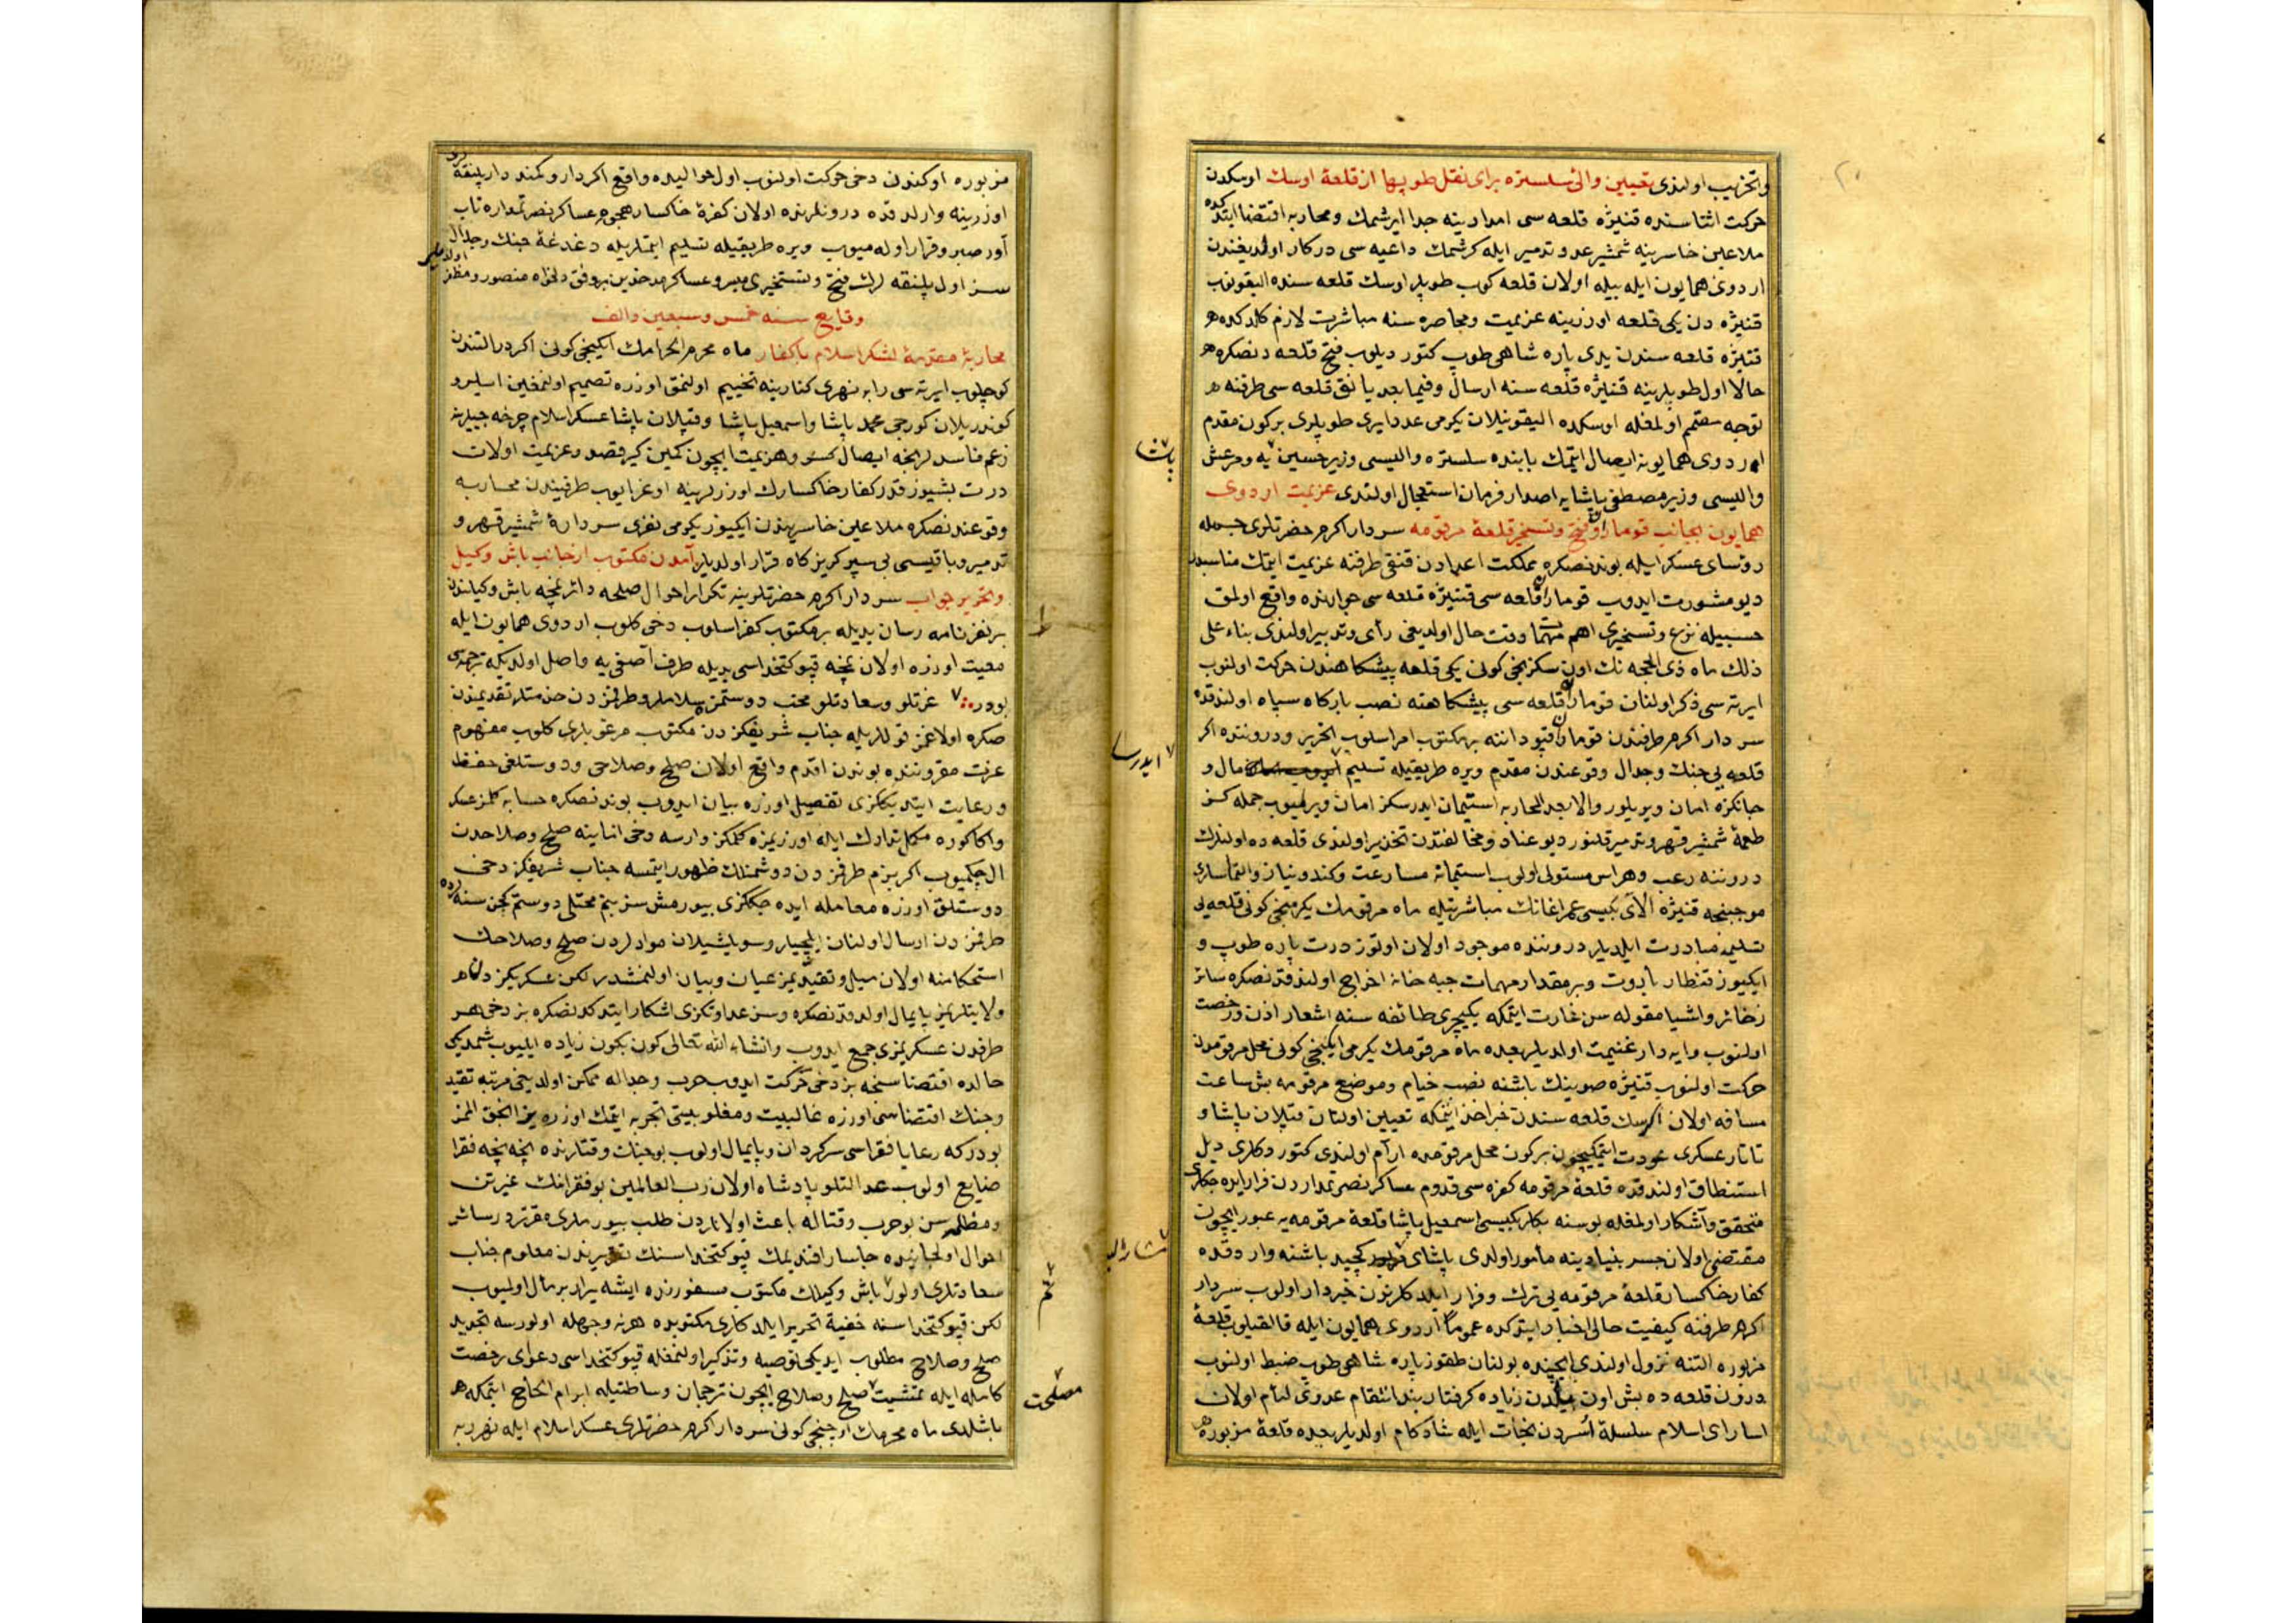 و تخریب اولندی تعیین والیٔ سلستره برای نقل طوپها از قلعهٔ اوسك اوسكدن
حركت اثناسنده قنیژه قلعه سی امدادینه جدا ایرشمك و محاربه اقتضا ایتدكده
ملاعین خاسرینه شمشیر عدو تدمیر ایله كرشمك داعیه سی دركار اولدیغندن
اردوی همایون ایله بیله اولان قلعه كوب طوپلر اوسك قلعه سنده الیقونوب
قنیژه دن یكی قلعه اوزرینه عزیمت و محاصره سنه مباشرت لازم كلدكده
قنیژه قلعه سندن یدی پاره شاهی طوپ كتور دیلوب فتح قلعه دنصكره
حالا اول طوپلرینه قنیژه قلعه سنه ارسال و فیما بعد یانق قلعه سی طرفنه
توجه مصمم اولمغله اوسكده الیقونیلان یكرمی عدد ایری طوپلری بر كون مقدم
اردوی همایونه ایصال ایتمك بابنده سلستره والیسی وزیر حسین پاشایه و مرعش
والیسی وزیر مصطفی پاشایه اصدار فرمان استعجال اولندی عزیمت اردوی
همایون بجانب قوماران و فتح و تسخیر قلعهٔ مرقومه سردار اكرم حضرتلری جمله
رؤسای عسكر ایله بوندنصكره مملكت اعدادن قنقی طرفنه عزیمت ایتمك مناسبدر
دیو مشورت ایدوب قوماران قلعه سی قنیژه قلعه سی جوارنده واقع اولمق
حسبیله نزع و تسخیری اهم مهمات وقت حال اولدیغی رأی و تدبیر اولندی بناء علی
ذلك ماه ذی الحجه نك اون سكزنجی كونی یكی قلعه پیشكاهندن حركت اولنوب
ایرته سی ذكر اولنان قوماران قلعه سی پیشكاهنه نصب باركاه سپاه اولندقده
سردار اكرم طرفندن قوماران قپودانه بر مكتوب امر اسلوب تحریر و دروننده اكر
قلعه یی جنك و جدال وقوعندن مقدم ویره طریقیله تسلیم ایدرسا مال و
جانكزه امان ویریلور والا بعد المحاربه استیمان ایدرسكز امان ویرلمیوب جمله كز
طعمهٔ شمشیر قهر و تدمیر قلنور دیو عناد و مخالفتدن تحذیر اولندی قلعه ده اولنلرك
دروننه رعب و هراس مستولی اولوب استیمانه مسارعت و كندو نیاز و التماسلری
موجبنجه قنیژه آلای بكیسی عمر اغانك مباشرتیله ماه مرقومك یكرمنجی كونی قلعه یی
تسلیمه مبادرت ایلدیلر دروننده موجود اولان اوتوز درت پاره طوپ و
ایكیوز قنطار باروت و بر مقدار مهمات جبه خانه اخراج اولندقدنصكره سائر
ذخائر و اشیا مقوله سن غارت ایتمكه یكیچری طائفه سنه اشعار اذن و رخصت
اولنوب وایه دار غنیمت اولدیلر بعده ماه مرقومك یكرمی ایكنجی كونی محل مرقومدن
حركت اولنوب قنیژه صوینك باشنه نصب خیام و موضع مرقومه بش ساعت
مسافه اولان قلعه سندن خبر اخذ ایتمكه تعیین اولنان قپلان پاشا و
تاتار عسكری عودت ایتمكیچون بر كون محل مرقومده آرام اولندی كتوردكلری دیل
استنطاق اولندقده قلعهٔ مرقومه كفره سی قدوم عساكر نصرتمداردن فرار ایده جكلری
متحقق و آشكار اولمغله بوسنه بكلربكیسی اسمعیل پاشا قلعهٔ مرقومه یه عبور ایچون
مقتضی اولان جسر بنیادینه مأمور اولدی پاشای مشارالیه كچید باشنه واردقده
كفار خاكسار قلعهٔ مرقومه یی ترك و فرار ایلدكلرندن خبردار اولوب سردار
اكرم طرفنه كیفیت حالی اخبار ایتدكده عموما اردوی همایون ایله قالقیلوب قلعهٔ
مزبوره التنه نزول اولندی ایچنده بولنان طقوز پاره شاهی طوپ ضبط اولنوب
درون قلعه ده بش اون ییلدن زیاده كرفتار بند انتقام عدوی لئام اولان
اسارای اسلام سلسلهٔ اسردن نجات ایله شادكام اولدیلر بعده قلعهٔ مزبوره
پاشا
ایدرسا
مشارالیه
مزبوره اوكندن دخی حركت اولنوب اول حوالیده واقع اكردار و كمند دار پلنقه لری
اوزرینه وارلدقده درونلرنده اولان كفرهٔ خاكسار هجوم عساكر نصرتمداره تاب
آور صبر و قرار اوله میوب ویره طریقیله تسلیم ایتملریله دغدغهٔ جنك و جدال
سز اول پلنقه لرك فتح و تسخیری میسر و عساكر موحدین بر وفق دلخواه منصور و مظفر اولدیلر
وقایع سنه خمس و سبعین و الف
محاربهٔ مقدمهٔ لشكر اسلام با كفار ماه محرم الحرامك ایكنجی كونی اكردر التندن
كوچیلوب ایرته سی رابه نهری كنارینه تخییم اولنمق اوزره تصمیم اولنمغین ایلرو
كوندریلان كورجی محمد پاشا و اسمعیل پاشا و قپلان پاشا عسكر اسلام چرخه جیلرینه
زعم فاسدلرنجه ایصال كسر و هزیمت ایچون كمین كیر قصد و عزیمت اولان
درت بشیوز قدر كفار خاكسارك اوزرلرینه اوغرایوب طرفیندن محاربه
وقوعندنصكره ملاعین خاسریندن ایكیوز یكرمی نفری سردادهٔ شمشیر قهر و
تدمیر و باقیسی پی سپر كریزكاه فرار اولدیلر آمدن مكتوب از جانب باش وكیل
و تحریر جواب سردار اكرم حضرتلرینه تكرار احوال صلحه دائر نمچه باش وكیلندن
بر نفر نامه رسان یدیله بر مكتوب كفر اسلوب دخی كلوب اردوی همایون ایله
معیت اوزره اولان نمچه قپو كتخداسی یدیله طرف آصفی یه واصل اولدیكه ترجمه سی
بودر عزتلو و سعادتلو محب دوستمز سلاملر و طرفمزدن خدمتلر تقدیمندن
صكره اولاغمز قوللریله جناب شریفكزدن مكتوب مرغوبلری كلوب مفهوم
عزت مقروننده بوندن اقدم واقع اولان صلح و صلاحی و دوستلغی حفظ
و رعایت ایتدیككزی تفصیل اوزره بیان ایدوب بوندنصكره حسابه كلمز عسكر
و اكا كوره مكمل تدارك ایله اوزریمزه كلمكز وارسه دخی انابینه صلح و صلاحدن
ال چكمیوب اكر بزم طرفمزدن دوشمنلك ظهور ایتمسه جناب شریفكز دخی
دوستلق اوزره معامله ایده جككزی بیورمش سز بنم محبتلی دوستم كچن سنه ده
طرفمزدن ارسال اولنان ایلچیلر و سویلشیلان موادلردن صلح و صلاحك
استحكامنه اولان میل و تقیدیمز عیان و بیان اولنمشدر لكن عسكریكزدن
ولایتلریمز پایمال اولدقدنصكره و سز عداوتكزی اشكار ایتدكدنصكره بز دخی هر
طرفدن عسكریمزی جمع ایدوب و انشاء الله تعالی كون بكون زیاده ایلیوب شمدیكی
حالده اقتضاسنجه بز دخی حركت ایدوب حرب و جداله ممكن اولدیغی مرتبه تقید
و جنك اقتضاسی اوزره غالبیت و مغلوبیتی تجربه ایتمك اوزره یز انجق المز
بودركه رعایا فقراسی سركردان و پایمال اولوب بو جنك و قتالنده نیجه نیجه فقرا
ضایع اولوب عدالتلو پادشاه اولان رب العالمین بو فقرانك غیرتن
و مظلمه سن بو حرب و قتاله باعث اولانلردن طلب بیورملری مقرردر سائر
احوال اول جانبده جاسار افندیمك قپو كتخداسنك تقریرندن معلوم جناب
سعادتلری اولور باش وكیلك مكتوب مسفورنده ایشه یرار بر مآل اولمیوب
لكن قپو كتخداسنه خفیة تحریر ایلدكلری مكتوبده هر نه وجهله اولورسه تجدید
صلح و صلاح مطلوب ایدیكی توصیه و تذكیر اولنمغله قپو كتخداسی دعوای رخصت
كامله ایله تمشیت مصلحت صلح و صلاح ایچون ترجمان وساطتیله ابرام و الحاح ایتمكه
باشلدی ماه محرمك اوچنجی كونی سردار اكرم حضرتلری عسكر اسلام ایله نهر رابه
مصلحت